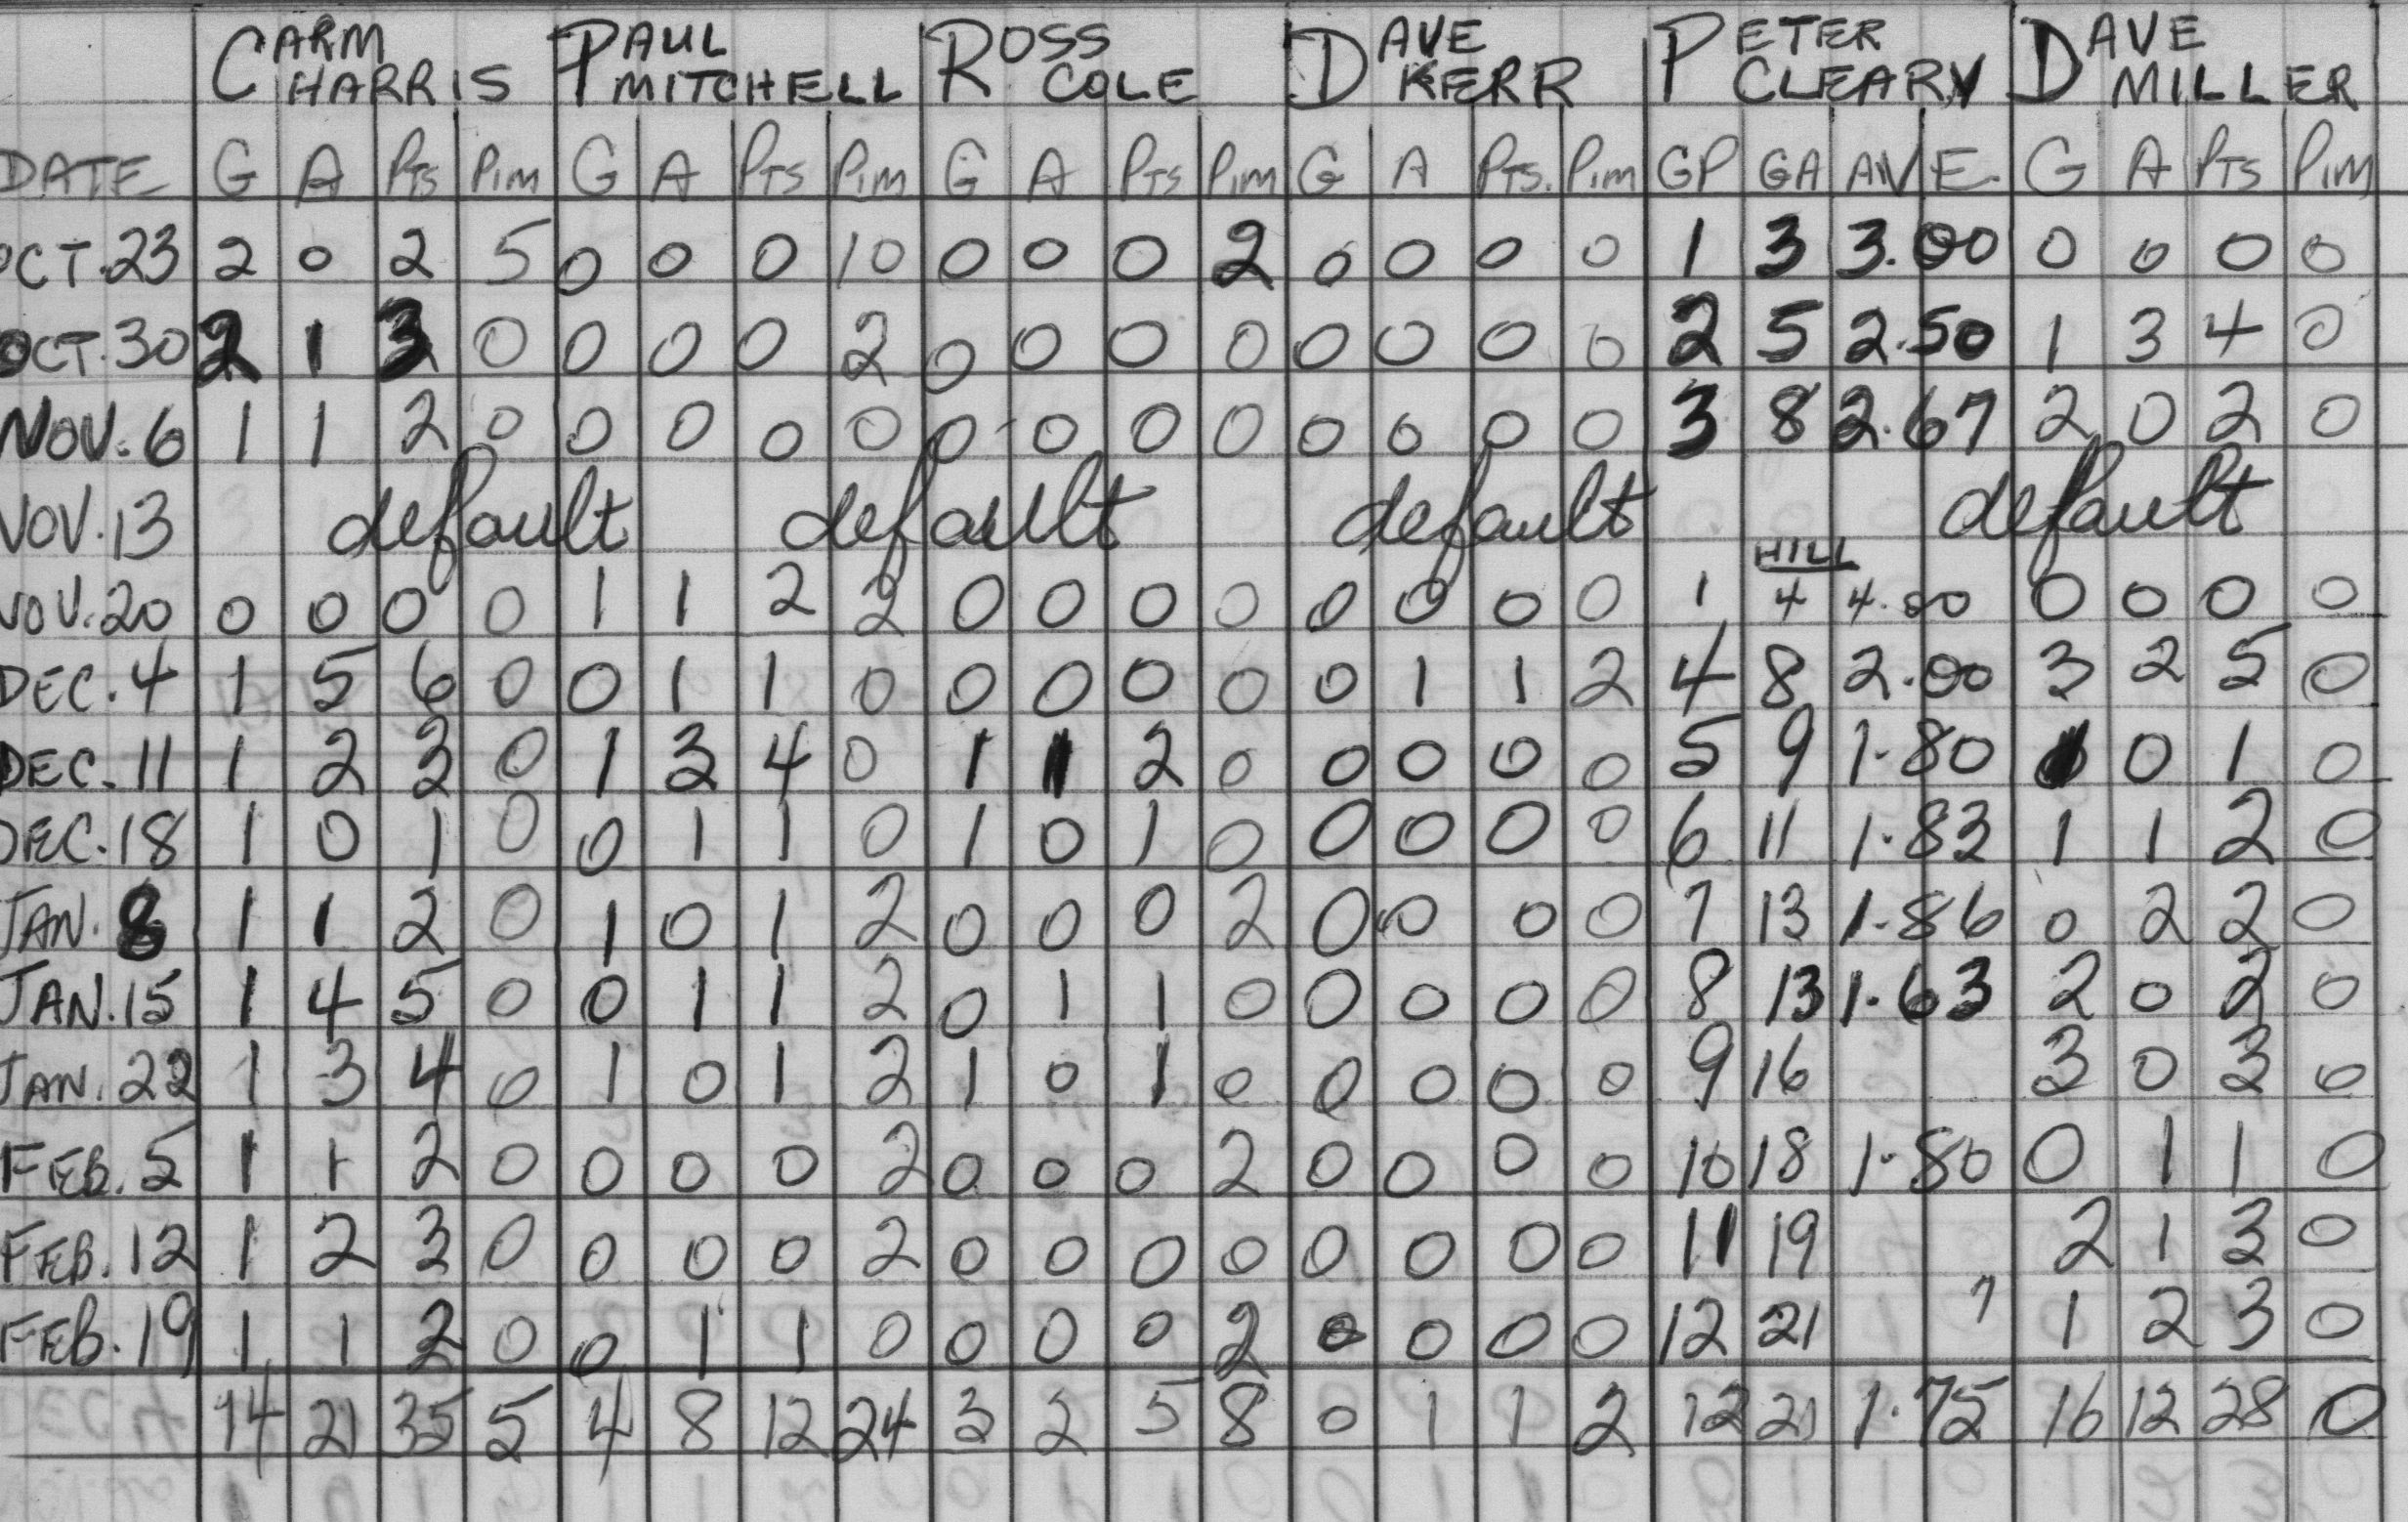 CARM HARRIS PAUL MITCHELL ROSS COLE DAVE KERR PETER CLEARY DAVE MILLER
DATE G A PTS PIM G A PTS PIM G A PTS PIM G A PTS. PIM GP GA AVE. G A PTS PIM
OCT.23 2 0 2 5 0 0 0 10 0 0 0 2 0 0 0 0 1 3 3.00 0 0 0 0
OCT.30 2 1 3 0 0 0 0 2 0 0 0 0 0 0 0 0 2 5 2.50 1 3 4 0
NOV.6 1 1 2 0 0 0 0 0 0 0 0 0 0 0 0 0 3 8 2.67 2 0 2 0
NOV.13 default default default default
HILL
NOV.20 0 0 0 0 1 1 2 2 0 0 0 0 0 0 0 0 1 4 4.00 0 0 0 0
DEC.4 1 5 6 0 0 1 1 0 0 0 0 0 0 1 1 2 4 8 2.00 3 2 5 0
DEC.11 1 2 3 0 1 3 4 0 1 1 2 0 0 0 0 0 5 9 1.80 1 0 1 0
DEC.18 1 0 1 0 0 1 1 0 1 0 1 0 0 0 0 0 6 11 1.83 1 1 2 0
JAN.8 1 1 2 0 1 0 1 2 0 0 0 2 0 0 0 0 7 13 1.86 0 2 2 0
JAN.15 1 4 5 0 0 1 1 2 0 1 1 0 0 0 0 0 8 13 1.63 2 0 2 0
JAN.22 1 3 4 0 1 0 1 2 1 0 1 0 0 0 0 0 9 16 3 0 3 0
FEB.5 1 1 2 0 0 0 0 2 0 0 0 2 0 0 0 0 10 18 1.80 0 1 1 0
FEB.12 1 2 3 0 0 0 0 2 0 0 0 0 0 0 0 0 11 19 2 1 3 0
FEB.19 1 1 2 0 0 1 1 0 0 0 0 2 0 0 0 0 12 21 1 2 3 0
14 21 35 5 4 8 12 24 3 2 5 8 0 1 1 2 12 21 1.75 16 12 28 0